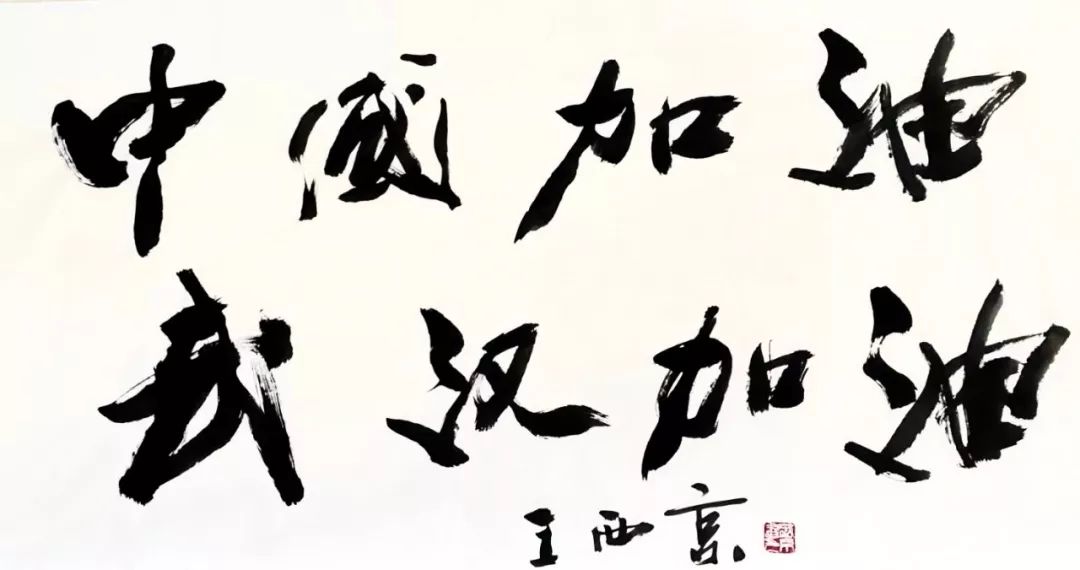 中國加油
武汉加油
王西京